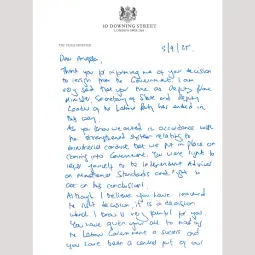 10 DOWNING STREET
LONDON SW1A 2AA
THE PRIME MINISTER
5/9/25
Dear Angela,
Thank you for informing me of your decision
to resign from the Government. I am
very sad that your time as Deputy Prime
Minister, Secretary of State and Deputy
Leader of the Labour Party has ended in
this way.
As you know we acted in accordance with
the strengthened system relating to
ministerial conduct that we put in place on
coming into Government. You were right to
refer yourself to the Independent Adviser
on Ministerial Standards and right to
act on his conclusions.
Although I believe you have reached
the right decision, it is a decision
which I know is very painful for you.
You have given your all to making
the Labour Government a success and
you have been a central part of our